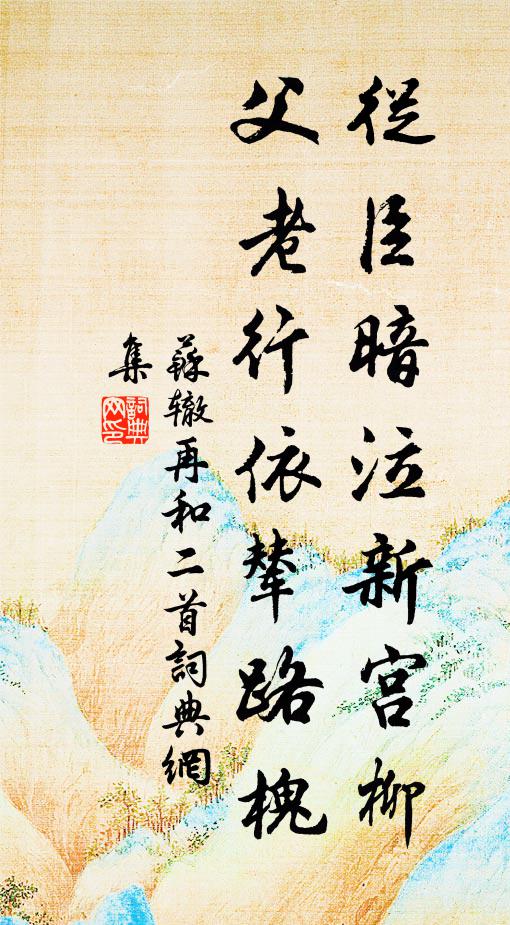 從臣暗泣新宮柳
父老行依輦路槐
蘇轍再和二首詞典網
集
詞典
网印